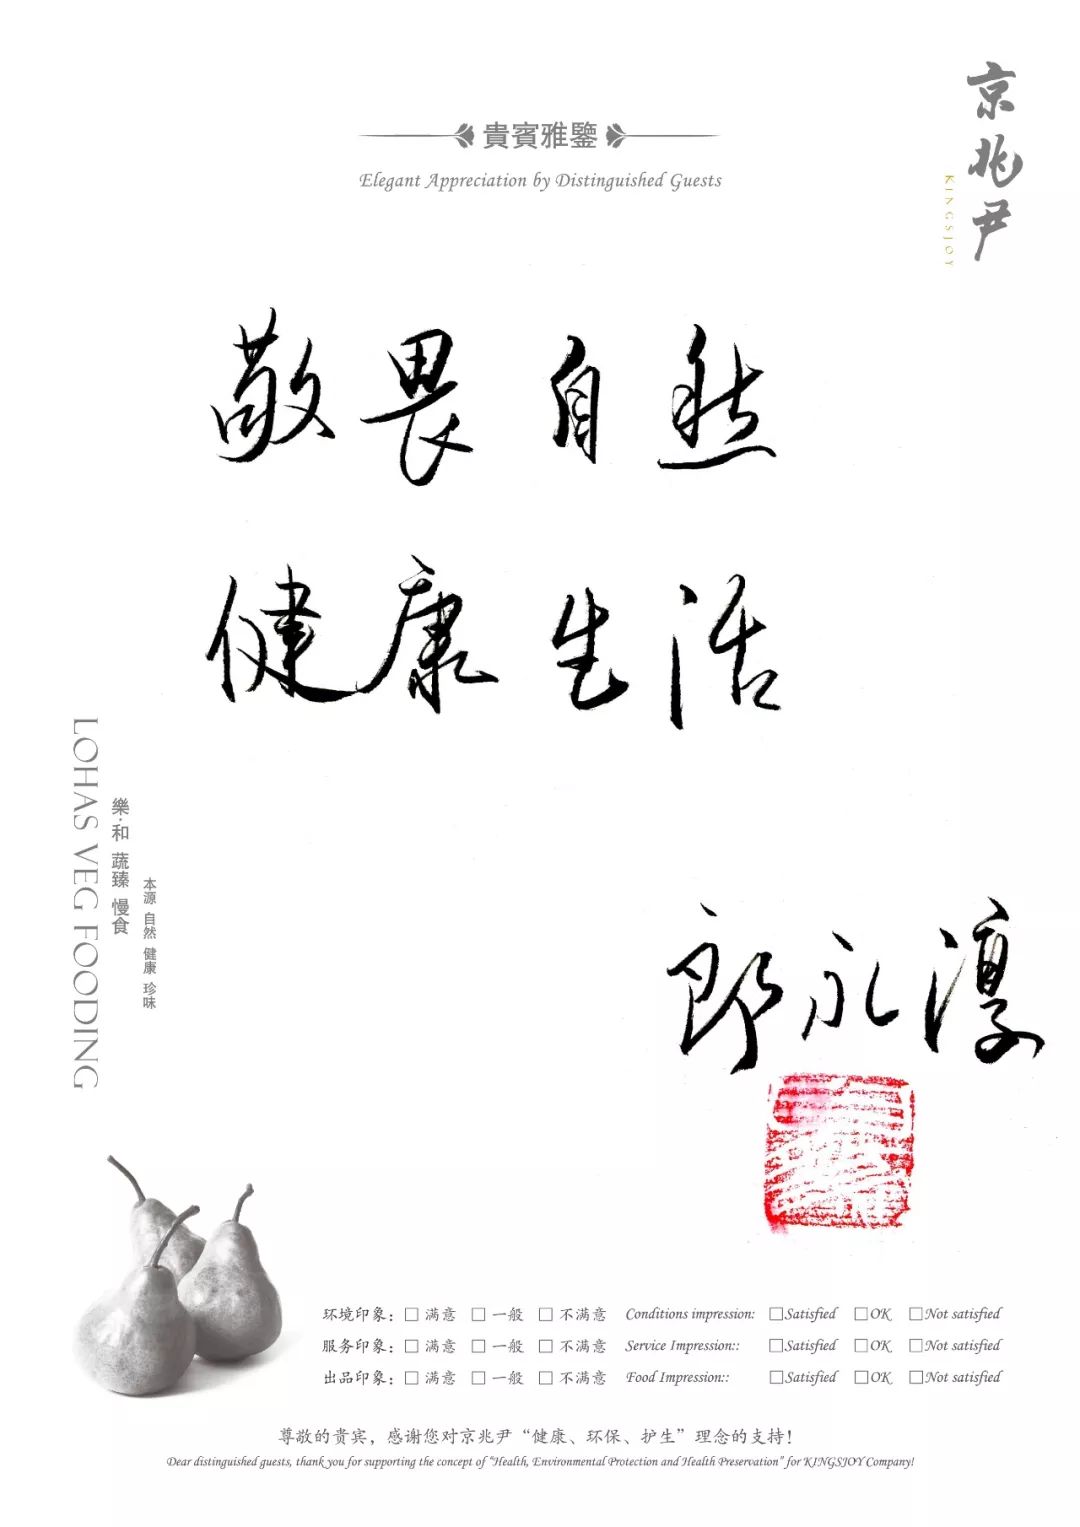 京兆尹
KINGSJOY
貴賓雅鑒
Elegant Appreciation by Distinguished Guests
敬畏自然
健康生活
郎永淳
LOHAS VEG FOODING
樂·和 蔬臻 慢食
本源 自然 健康 珍味
环境印象：□ 满意 □ 一般 □ 不满意 Conditions impression: □Satisfied □OK □Not satisfied
服务印象：□ 满意 □ 一般 □ 不满意 Service Impression:: □Satisfied □OK □Not satisfied
出品印象：□ 满意 □ 一般 □ 不满意 Food Impression:: □Satisfied □OK □Not satisfied
尊敬的贵宾，感谢您对京兆尹“健康、环保、护生”理念的支持！
Dear distinguished guests, thank you for supporting the concept of “Health, Environmental Protection and Health Preservation” for KINGSJOY Company!